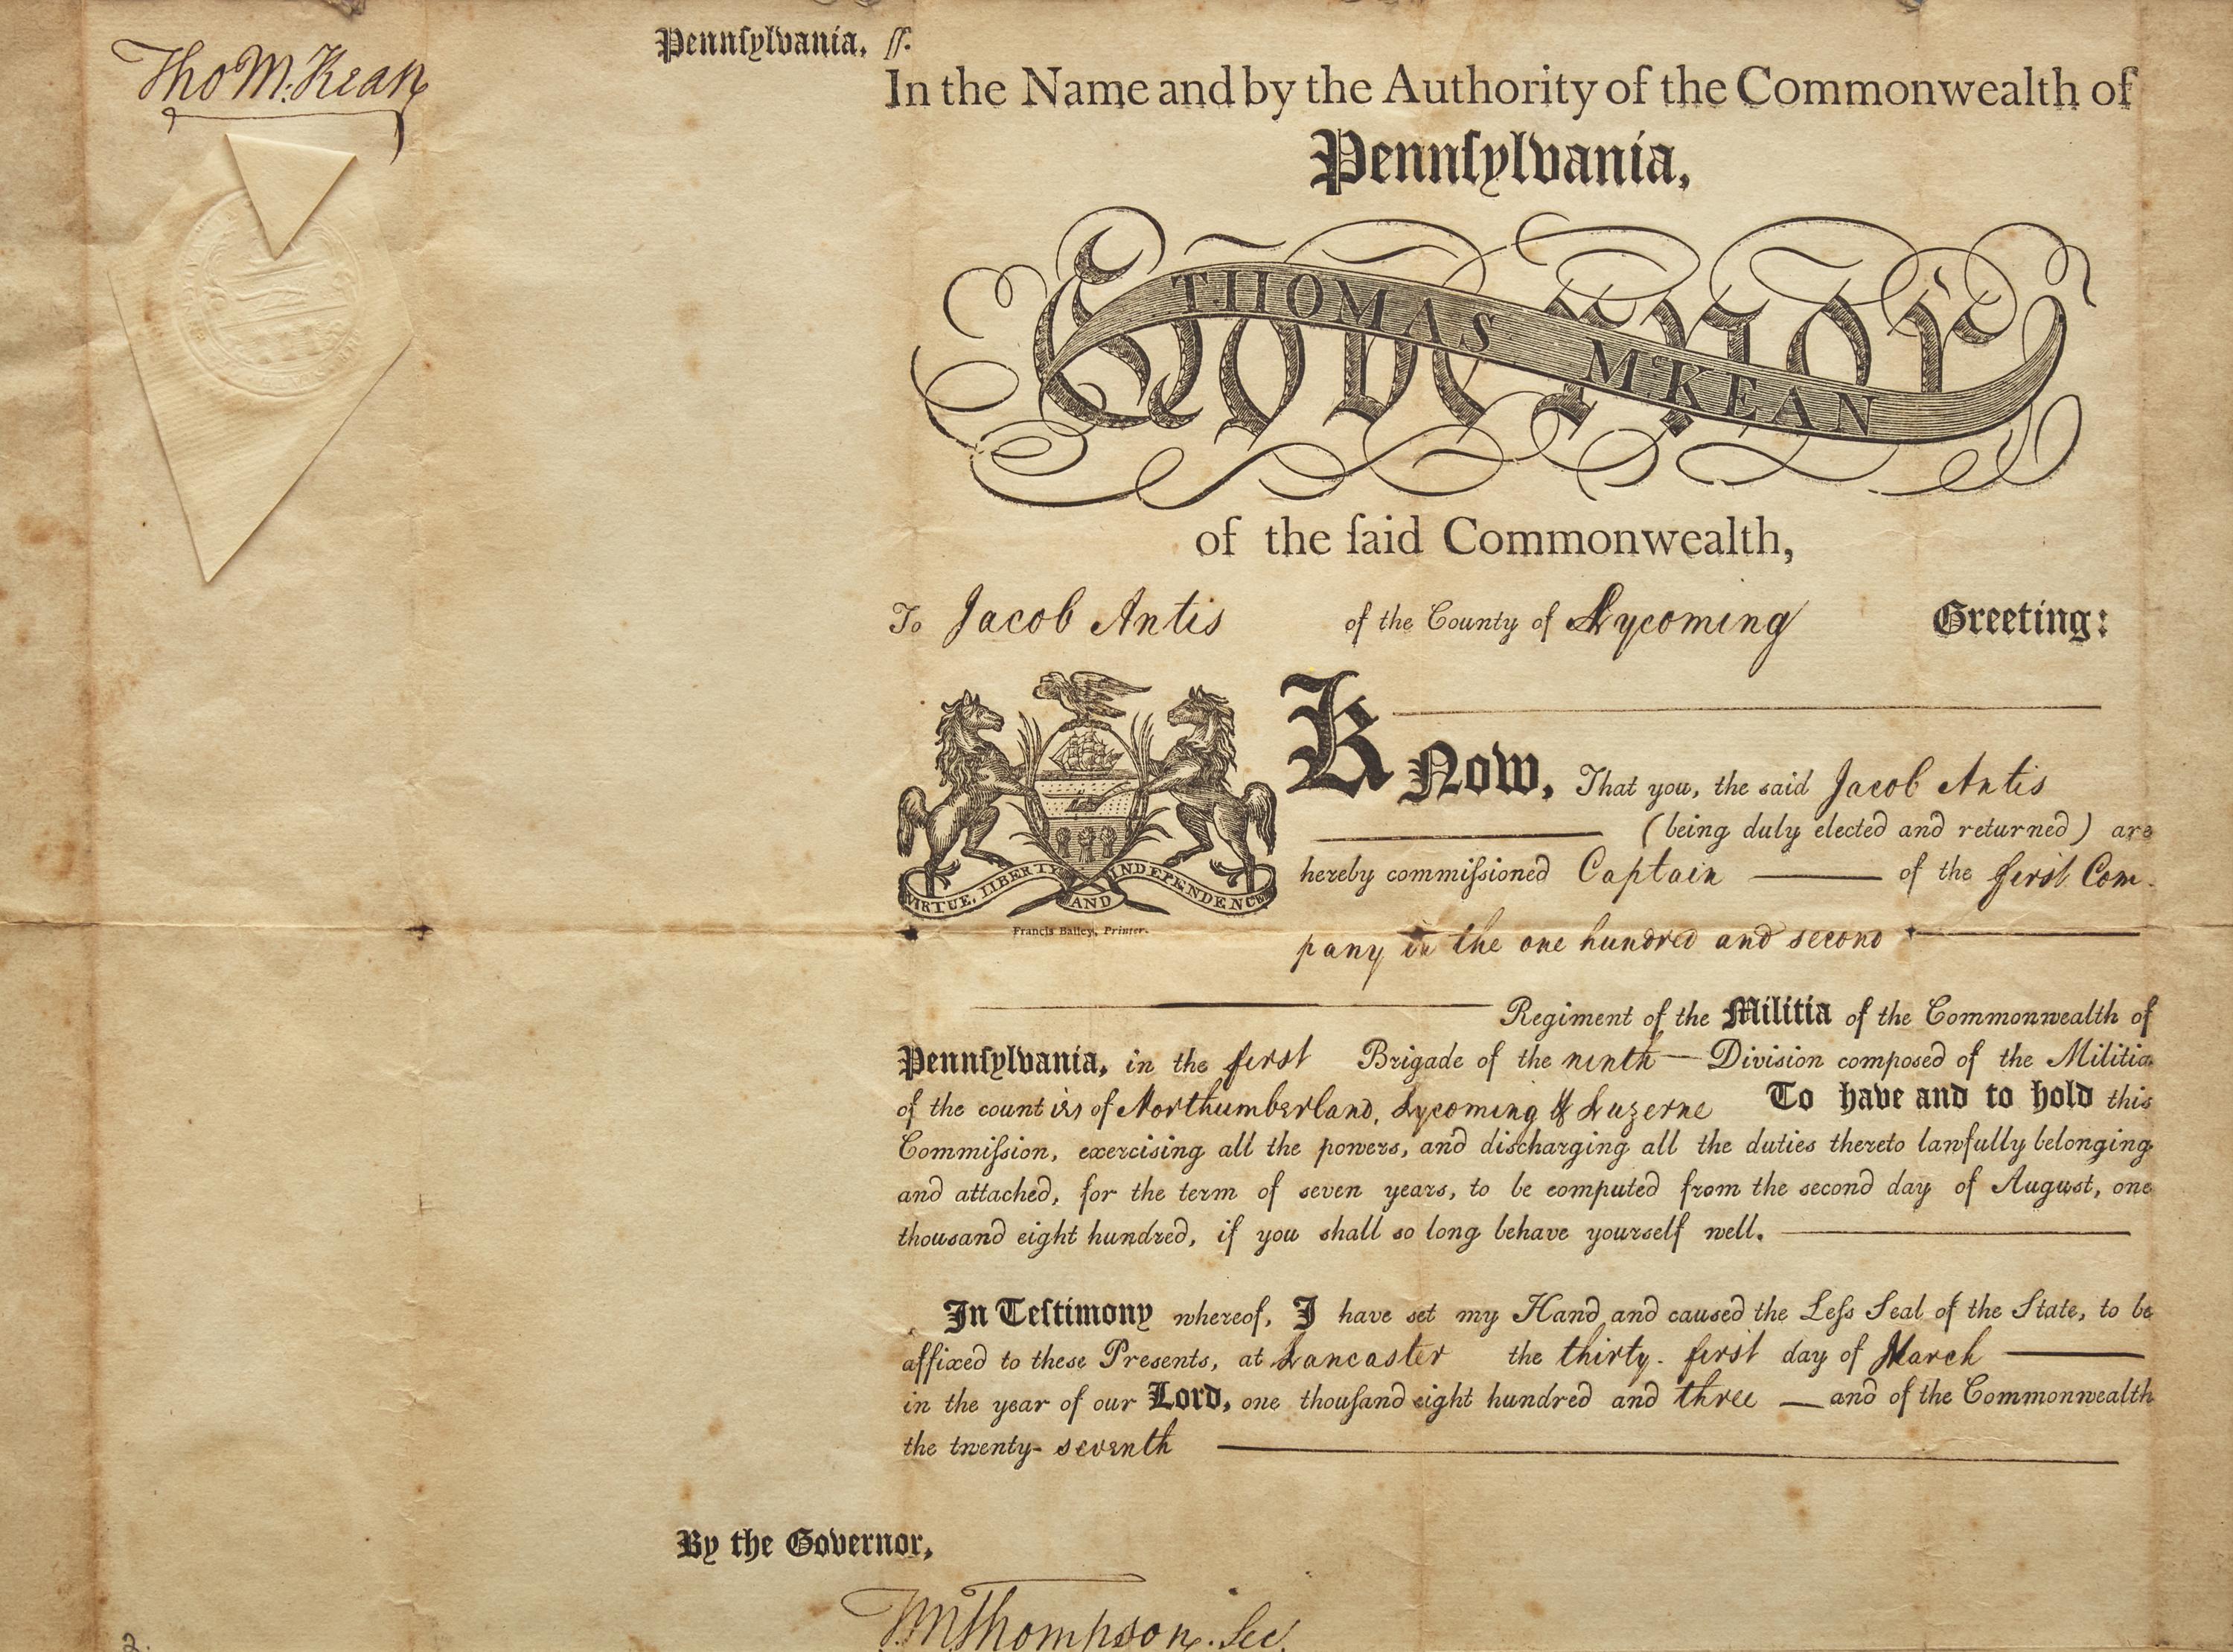 Tho M:Kean
Pennſylvania, ſſ.
In the Name and by the Authority of the Commonwealth of
Pennſylvania,
Governor
THOMAS M'KEAN
of the ſaid Commonwealth,
To Jacob Antis of the County of Lycoming Greeting:
Know, That you, the said Jacob Antis
(being duly elected and returned) are
hereby commiſsioned Captain of the first Com-
pany in the one hundred and second
VIRTUE, LIBERTY AND INDEPENDENCE
Francis Bailey, Printer.
Regiment of the Militia of the Commonwealth of
Pennſylvania, in the first Brigade of the ninth Division composed of the Militia
of the counties of Northumberland, Lycoming & Luzerne To have and to hold this
Commiſsion, exercising all the powers, and discharging all the duties thereto lawfully belonging
and attached, for the term of seven years, to be computed from the second day of August, one
thousand eight hundred, if you shall so long behave yourself well.
In Teſtimony whereof, I have set my Hand and caused the Leſs Seal of the State, to be
affixed to these Presents, at Lancaster the thirty-first day of March
in the year of our Lord, one thouſand eight hundred and three and of the Commonwealth
the twenty-seventh
By the Governor,
Thompson. Sec.
2.